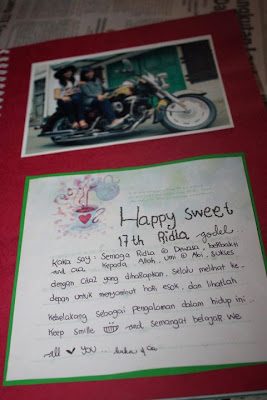 Happy sweet
17th Ridla
Kaka say : Semoga Ridla @ Dewasa, berbakti
and cica kepada Allah, umi @ Abi, sukses
dengan cita2 yang diharapkan, selalu melihat ke
depan untuk menyambut hari esok, dan lihatlah
kebelakang sebagai pengalaman dalam hidup ini..
Keep smille and semangat belajar we
all ♥ you ...